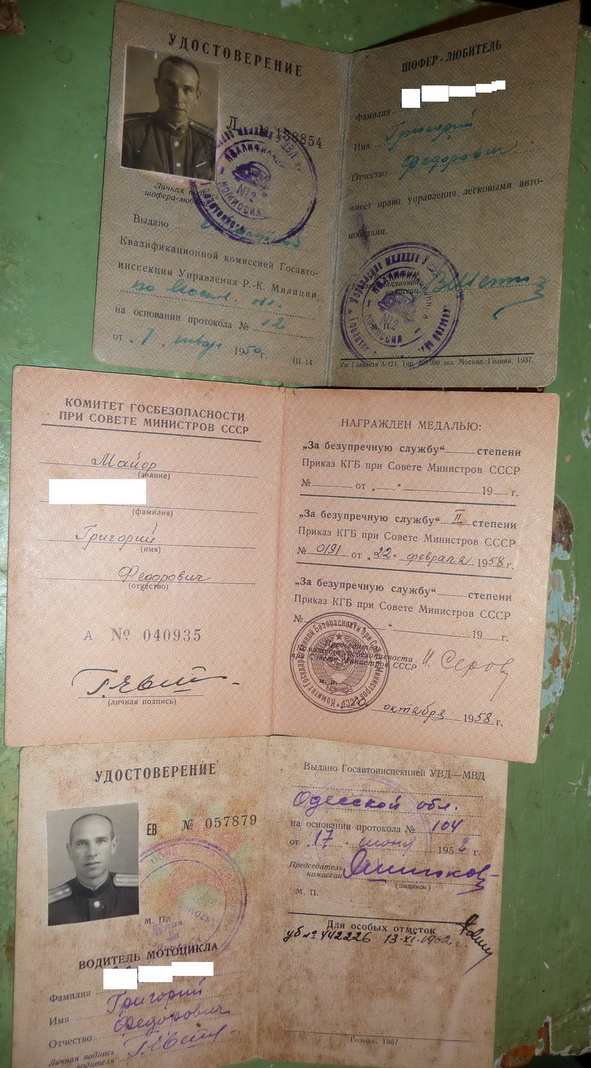 УДОСТОВЕРЕНИЕ
Л № 158854
Личная
шофера-люб
Выдано
Квалификационной комиссией Госавто-
инспекции Управления Р.-К. Милиции
на основании протокола № 12
от 7 января 1950 г.
Ш 14
ШОФЕР-ЛЮБИТЕЛЬ
Фамилия
Имя Григорий
Отчество Федорович
имеет право управления легковыми авто-
мобилями.
КОМИТЕТ ГОСБЕЗОПАСНОСТИ
ПРИ СОВЕТЕ МИНИСТРОВ СССР
Майор
(звание)
(фамилия)
Григорий
(имя)
Федорович
(отчество)
А № 040935
(личная подпись)
НАГРАЖДЕН МЕДАЛЬЮ:
„За безупречную службу“ степени
Приказ КГБ при Совете Министров СССР
№ от „ “ 19 г.
„За безупречную службу“ II степени
Приказ КГБ при Совете Министров СССР
№ 0191 от „22“ февраля 1958 г.
„За безупречную службу“ степени
Приказ КГБ при Совете Министров СССР
№ от „ “ 19 г.
Председатель
Комитета госбезопасности
при Совете Министров СССР
И. Серов
октября 1958 г.
УДОСТОВЕРЕНИЕ
ЕВ № 057879
М. П.
ВОДИТЕЛЬ МОТОЦИКЛА
Фамилия
Имя Григорий
Отчество Федорович
Личная подпись
водителя
Выдано Госавтоинспекцией УВД—МВД
Одесской обл.
на основании протокола № 104
от „17 июня 195 г.
Председатель
комиссии
(подпись)
М. П.
Для особых отметок
442226 13-XI-
Гознак. 1957